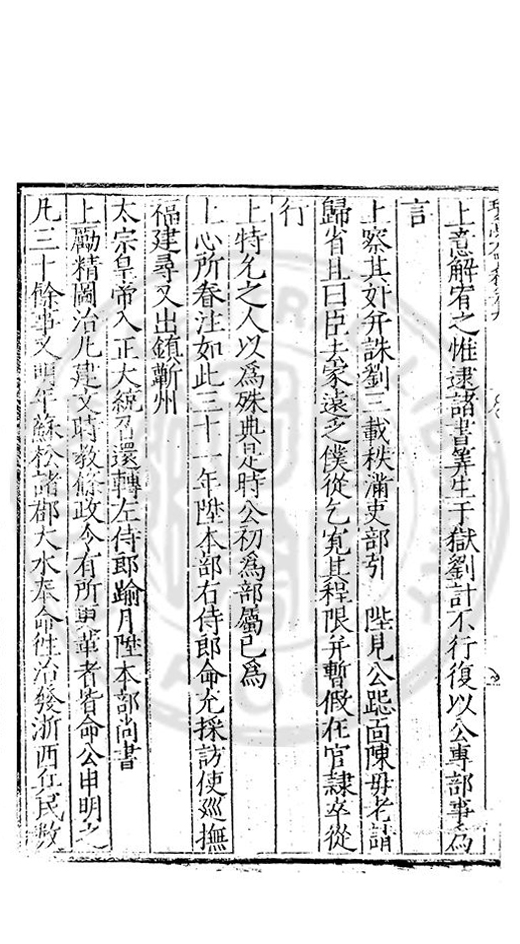 上意解宥之惟逮諸書筭生于獄劉計不行復以公專部事為
言
上察其奸并誅劉三載秩滿吏部引 陛見公跽面陳母老請
歸省且曰臣去家遠乏僕從乞寬其程限并暫假在官隸卒從
行
上特允之人以為殊典是時公初為部屬已為
上心所眷注如此三十一年陞本部右侍郎命充採訪使廵撫
福建尋又出鎮蘄州
太宗皇帝入正大統召還轉左侍郎踰月陞本部尚書
上勵精圖治凡建文時教條政令有所更革者皆命公申明之
凡三十餘事又明年蘇松諸郡大水奉命徃治發浙西丘民數